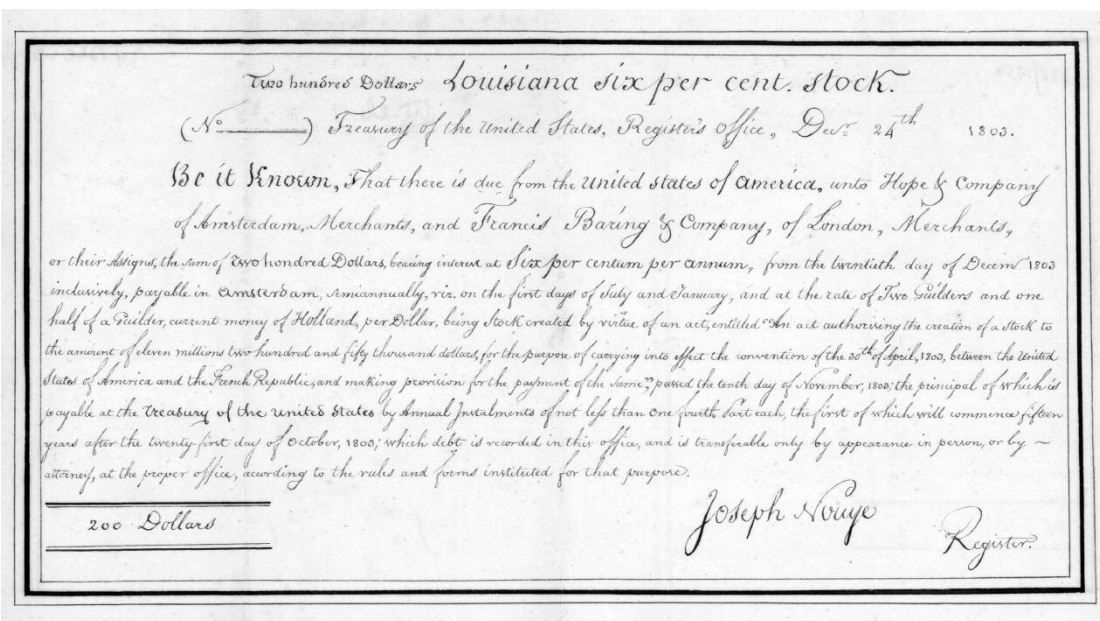 Two hundred Dollars Louisiana six per cent. stock.
(No ) Treasury of the United States, Register's Office, Decr. 24th 1803.
Be it Known, That there is due from the United States of America, unto Hope & Company
of Amsterdam, Merchants, and Francis Baring & Company, of London, Merchants,
or their Assigns, the sum of Two hundred Dollars, bearing interest at Six per centum per annum, from the twentieth day of Decemr 1803
inclusively, payable in Amsterdam, semiannually, viz. on the first days of July and January, and at the rate of Two Guilders and one
half of a Guilder, current money of Holland, per Dollar, being Stock created by virtue of an act, entitled "An act authorising the creation of a Stock to
the amount of eleven millions two hundred and fifty thousand dollars, for the purpose of carrying into effect the convention of the 30th of April, 1803, between the United
States of America and the French Republic, and making provision for the payment of the same", passed the tenth day of November, 1803; the principal of which is
payable at the Treasury of the United States by Annual Instalments of not less than One fourth Part each, the first of which will commence fifteen
years after the twenty first day of October, 1803; which debt is recorded in this office, and is transferable only by appearance in person, or by ~
attorney, at the proper office, acording to the rules and forms instituted for that purpose.
200 Dollars
Joseph Nourse
Register.